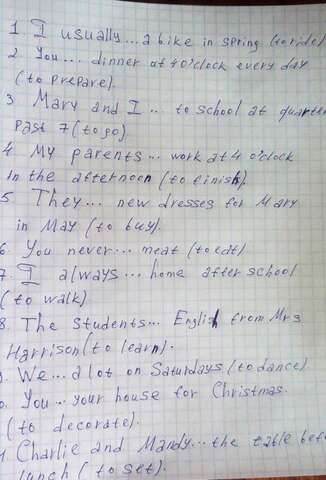 1. I usually... a bike in spring (to ride)
2. You ... dinner at 4 o'clock every day
(to prepare).
3 Mary and I ... to school at quarter
past 7 (to go)
4. My parents... work at 4 o'clock
in the afternoon (to finish).
5. They... new dresses for Mary
in May (to buy).
6. You never... meat (to eat).
7. I always... home after school
(to walk)
8. The students... English from Mrs
Harrison (to learn).
We... a lot on Saturdays (to dance)
You... your house for Christmas.
(to decorate).
Charlie and Mandy... the table befo
lunch (to set).